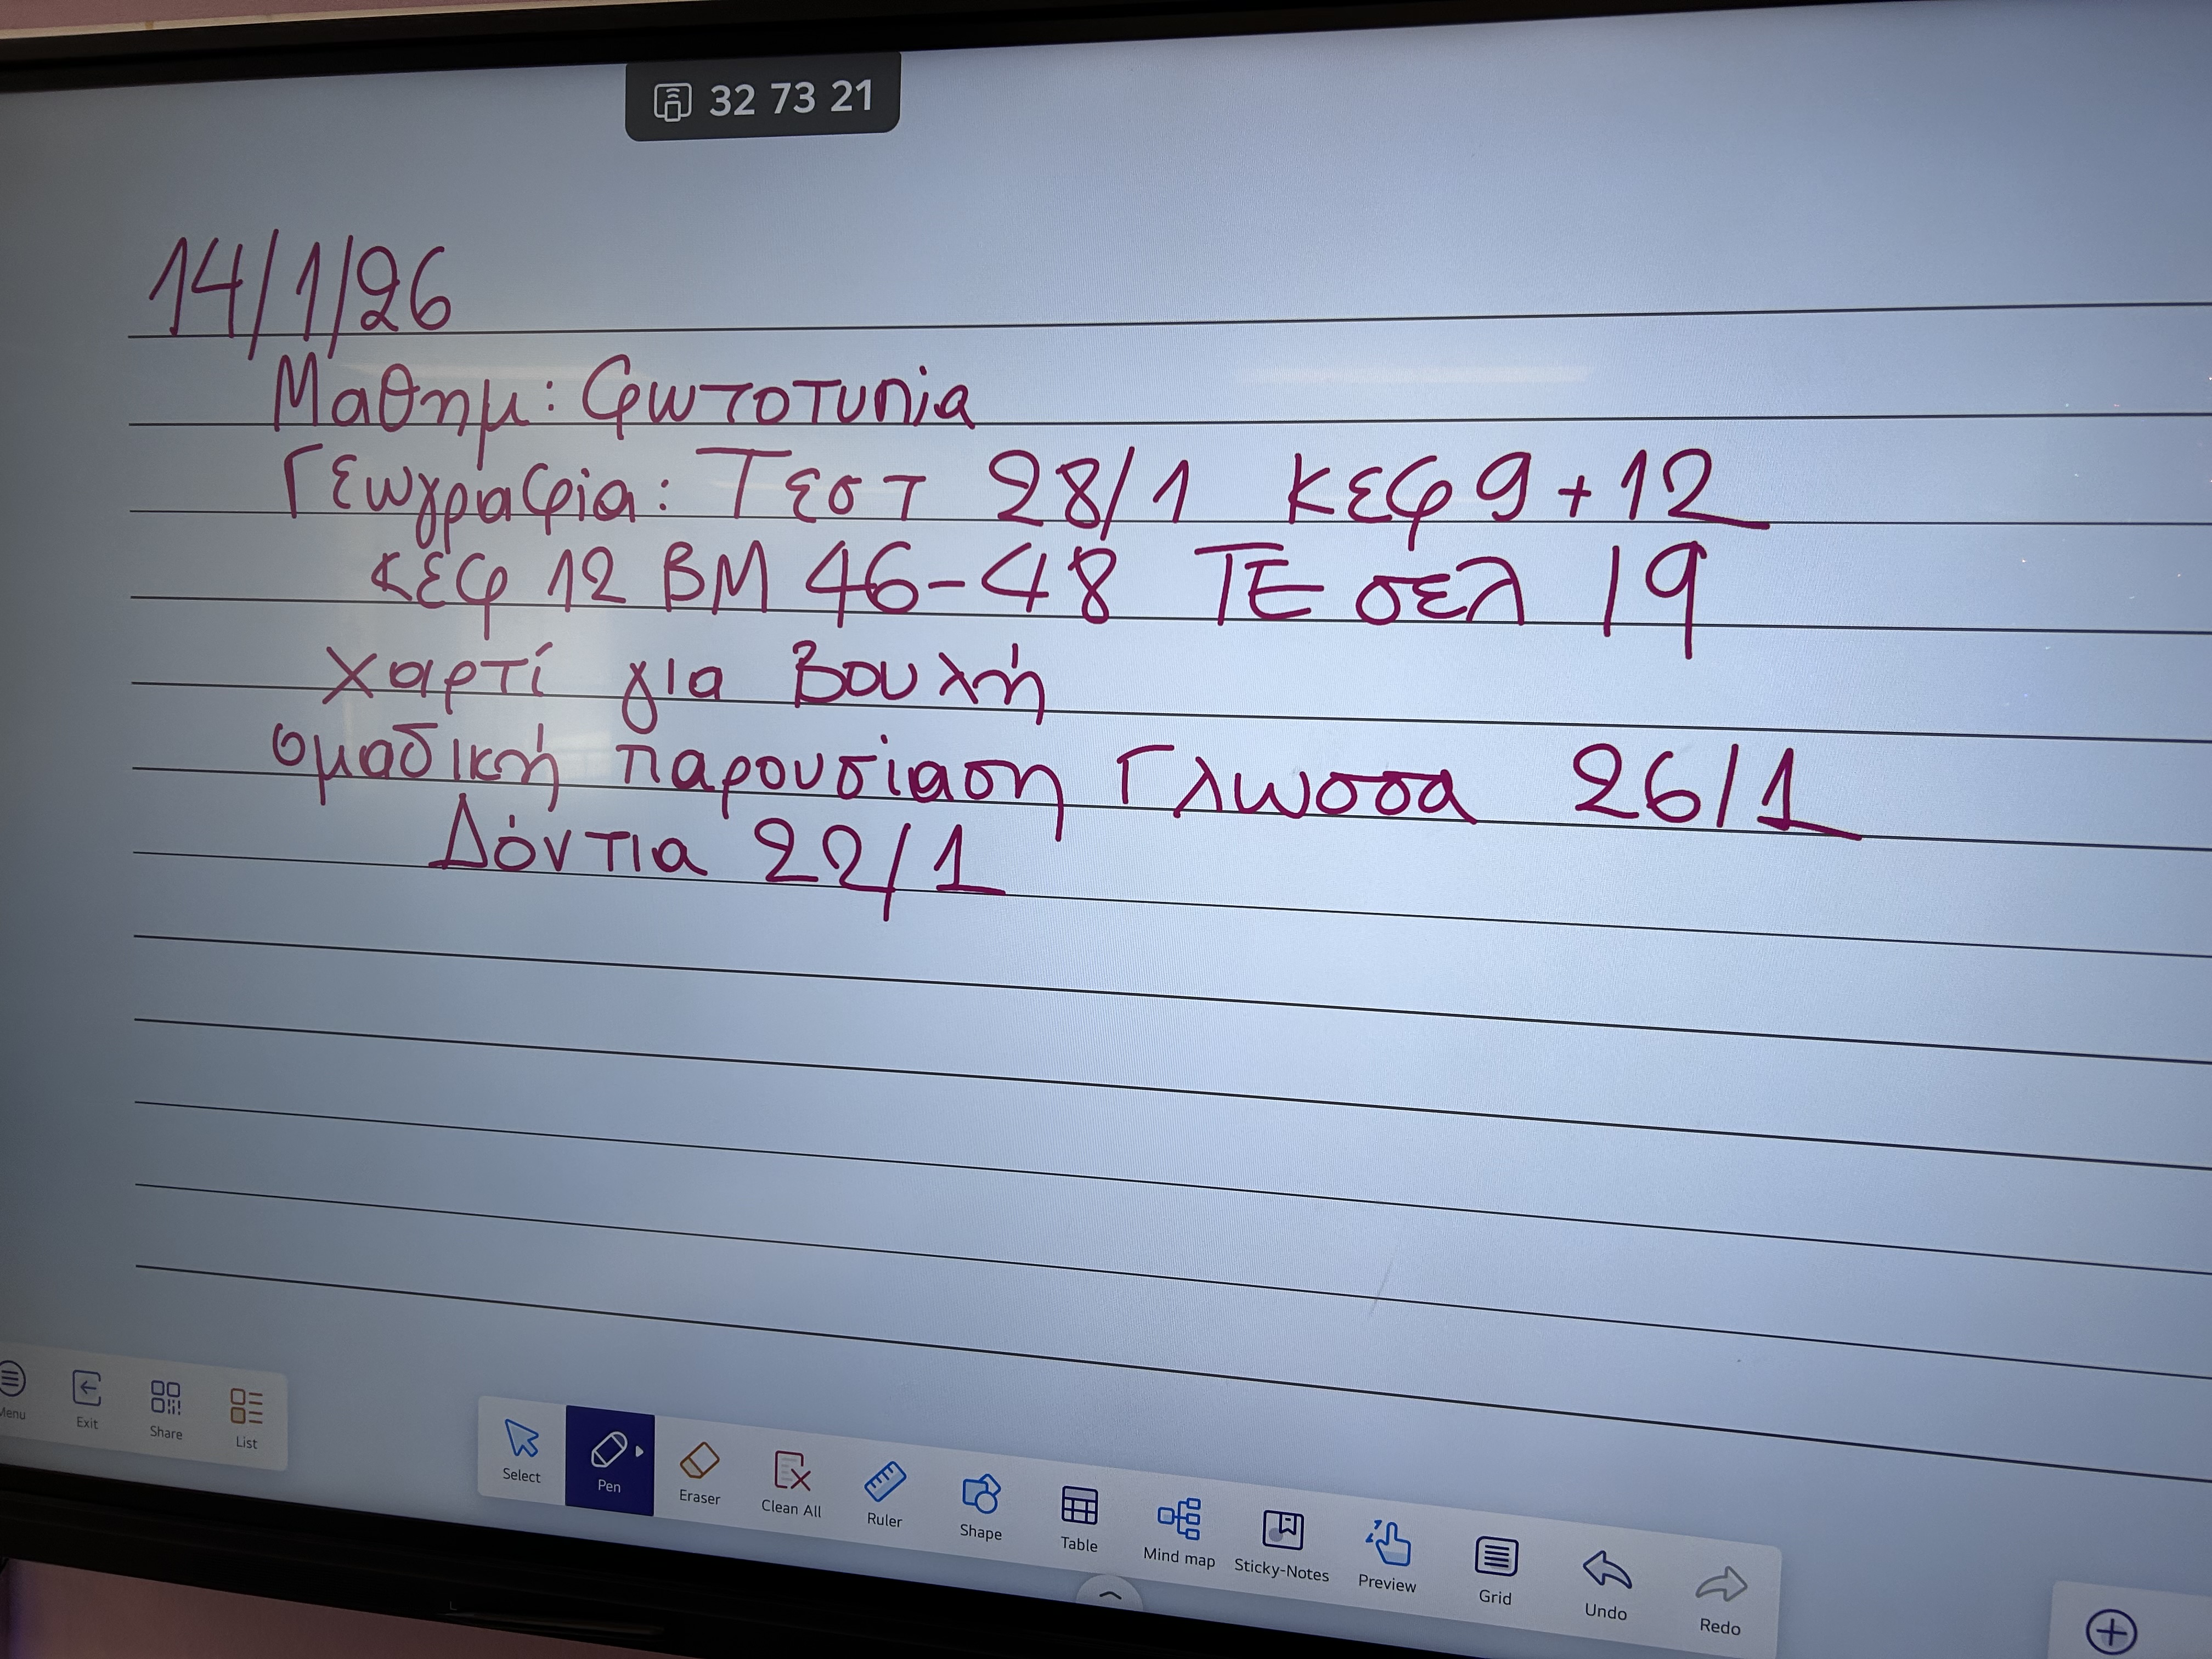 32 73 21
14/1/26
Μαθημ: Φωτοτυπία
Γεωγραφία: Τεστ 28/1 κεφ 9 + 12
κεφ 12 ΒΜ 46-48 ΤΕ σελ 19
Χαρτί για Βουλή
Ομαδική παρουσίαση Γλωσσα 26/1
Δόντια 22/1
Menu Exit Share List
Select Pen Eraser Clean All Ruler Shape Table Mind map Sticky-Notes Preview Grid Undo Redo